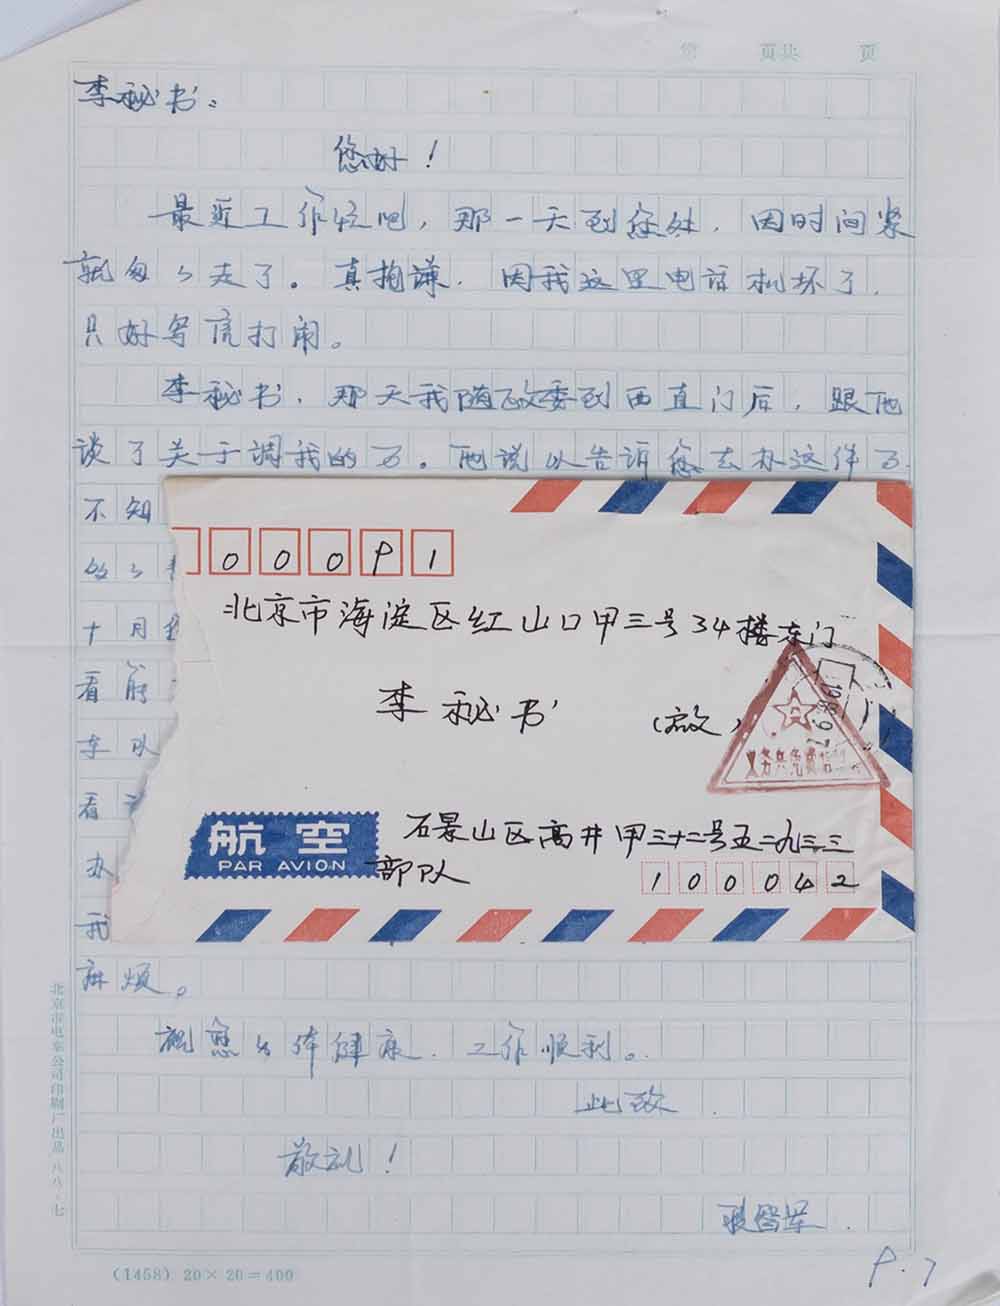 第 页共 页
李秘书：
您好！
最近工作忙吧，那一天到您处，因时间紧
就匆々走了。真抱谦．因我这里电话机坏了．
只好写信打闹。
李秘书．那天我随政委到西直门后．跟他
谈了关于调我的万。他说以告诉您去办这件万．
不知
十月
看
车队
看
办
我
麻烦。
祝您身体健康．工作顺利。
此致
敬礼！
P.7
00091
北京市海淀区红山口甲三号34楼东门
李秘书
（启）
义务兵免费信件
航空
PAR AVION
石景山区高井甲三十二号五二九三三
部队
100042
北京市电车公司印刷厂出品 八八·七
(1458) 20×20=400